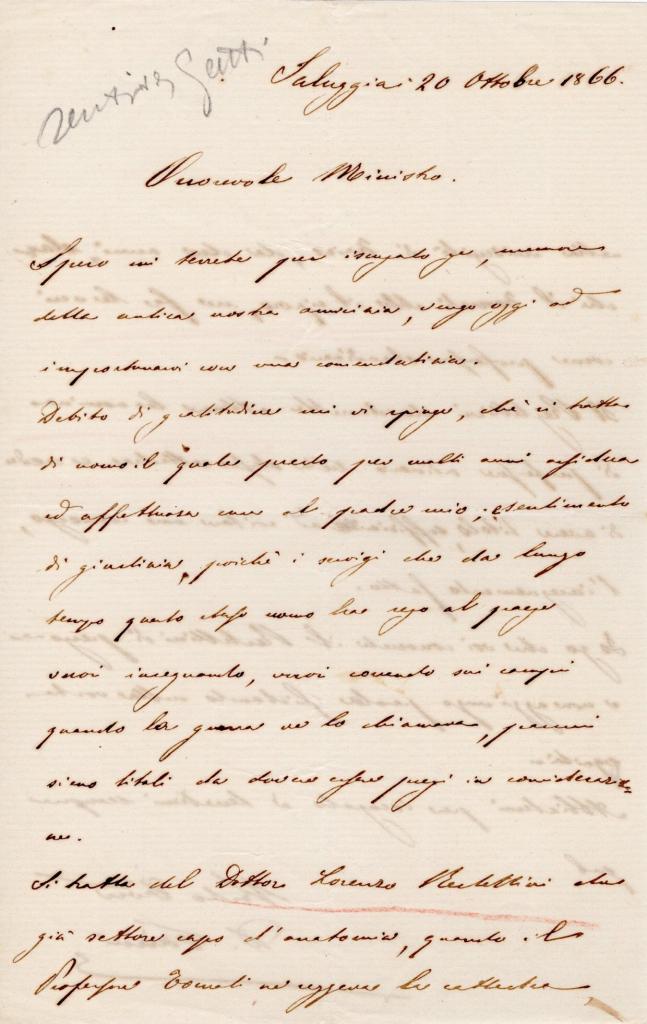 Gatti
Saluggia 20 Ottobre 1866.
Onorevole Ministro.
Spero mi terrete per iscusato se, memore
della antica nostra amicizia, vengo oggi ad
importunarvi con una comendatizia.
Debito di gratitudine mi vi spinge, chè si tratta
di uomo il quale prestò per molti anni assidua
ed affettuosa cura al padre mio; e sentimento
di giustizia, poichè i servigi che da lungo
tempo questo stesso uomo ha reso al paese
vuoi insegnando, vuoi curando sui campi
quando la guerra ve lo chiamava, parmi
sieno titoli da dover esser presi in considerazio=
ne.
Si tratta del Dottore Lorenzo che
già settore capo d'anatomia, quando il
Professore Tomati ne reggeva la cattedra,